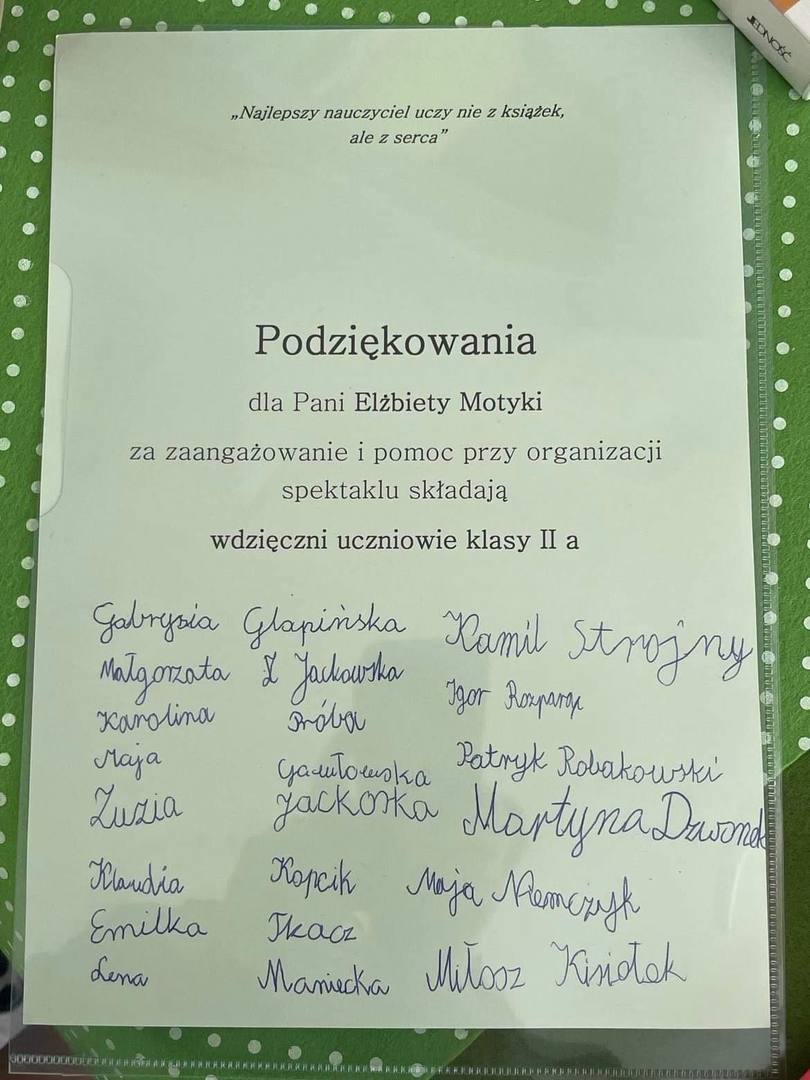 JEDNOŚĆ
„Najlepszy nauczyciel uczy nie z książek,
ale z serca”
Podziękowania
dla Pani Elżbiety Motyki
za zaangażowanie i pomoc przy organizacji
spektaklu składają
wdzięczni uczniowie klasy II a
Gabrysia Glapińska Kamil Strojny
Małgorzata Jackowska Igor
Karolina Próba
Maja Gawłowska Patryk Robakowski
Zuzia Jackoska Martyna Dzwonek
Klaudia Kopcik Maja Niemczyk
Emilka Tkacz
Lena Maniecka Miłosz Kisiołek